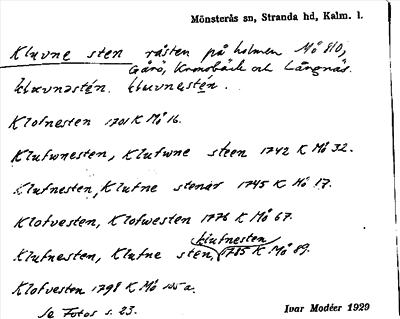 Mönsterås sn, Stranda hd, Kalm. l.
Kluvne sten råsten på holmen Mö 810,
Gårö, Kronobäck och Långnäs.
kluvnəstén. kluvnestén.
Klofnesten 1701 K Mö 16.
Klufwnesten, Klufwne steen 1742 K Mö 32.
Klufnesten, Klufne stenar 1745 K Mö 17.
Klofvesten, Klofwesten 1776 K Mö 67.
klufnesten
Klufnesten, Klufne sten, 1785 K Mö 89.
Klofvesten 1798 K Mö 105 a.
Se Fotos s. 23.
Ivar Modéer 1929